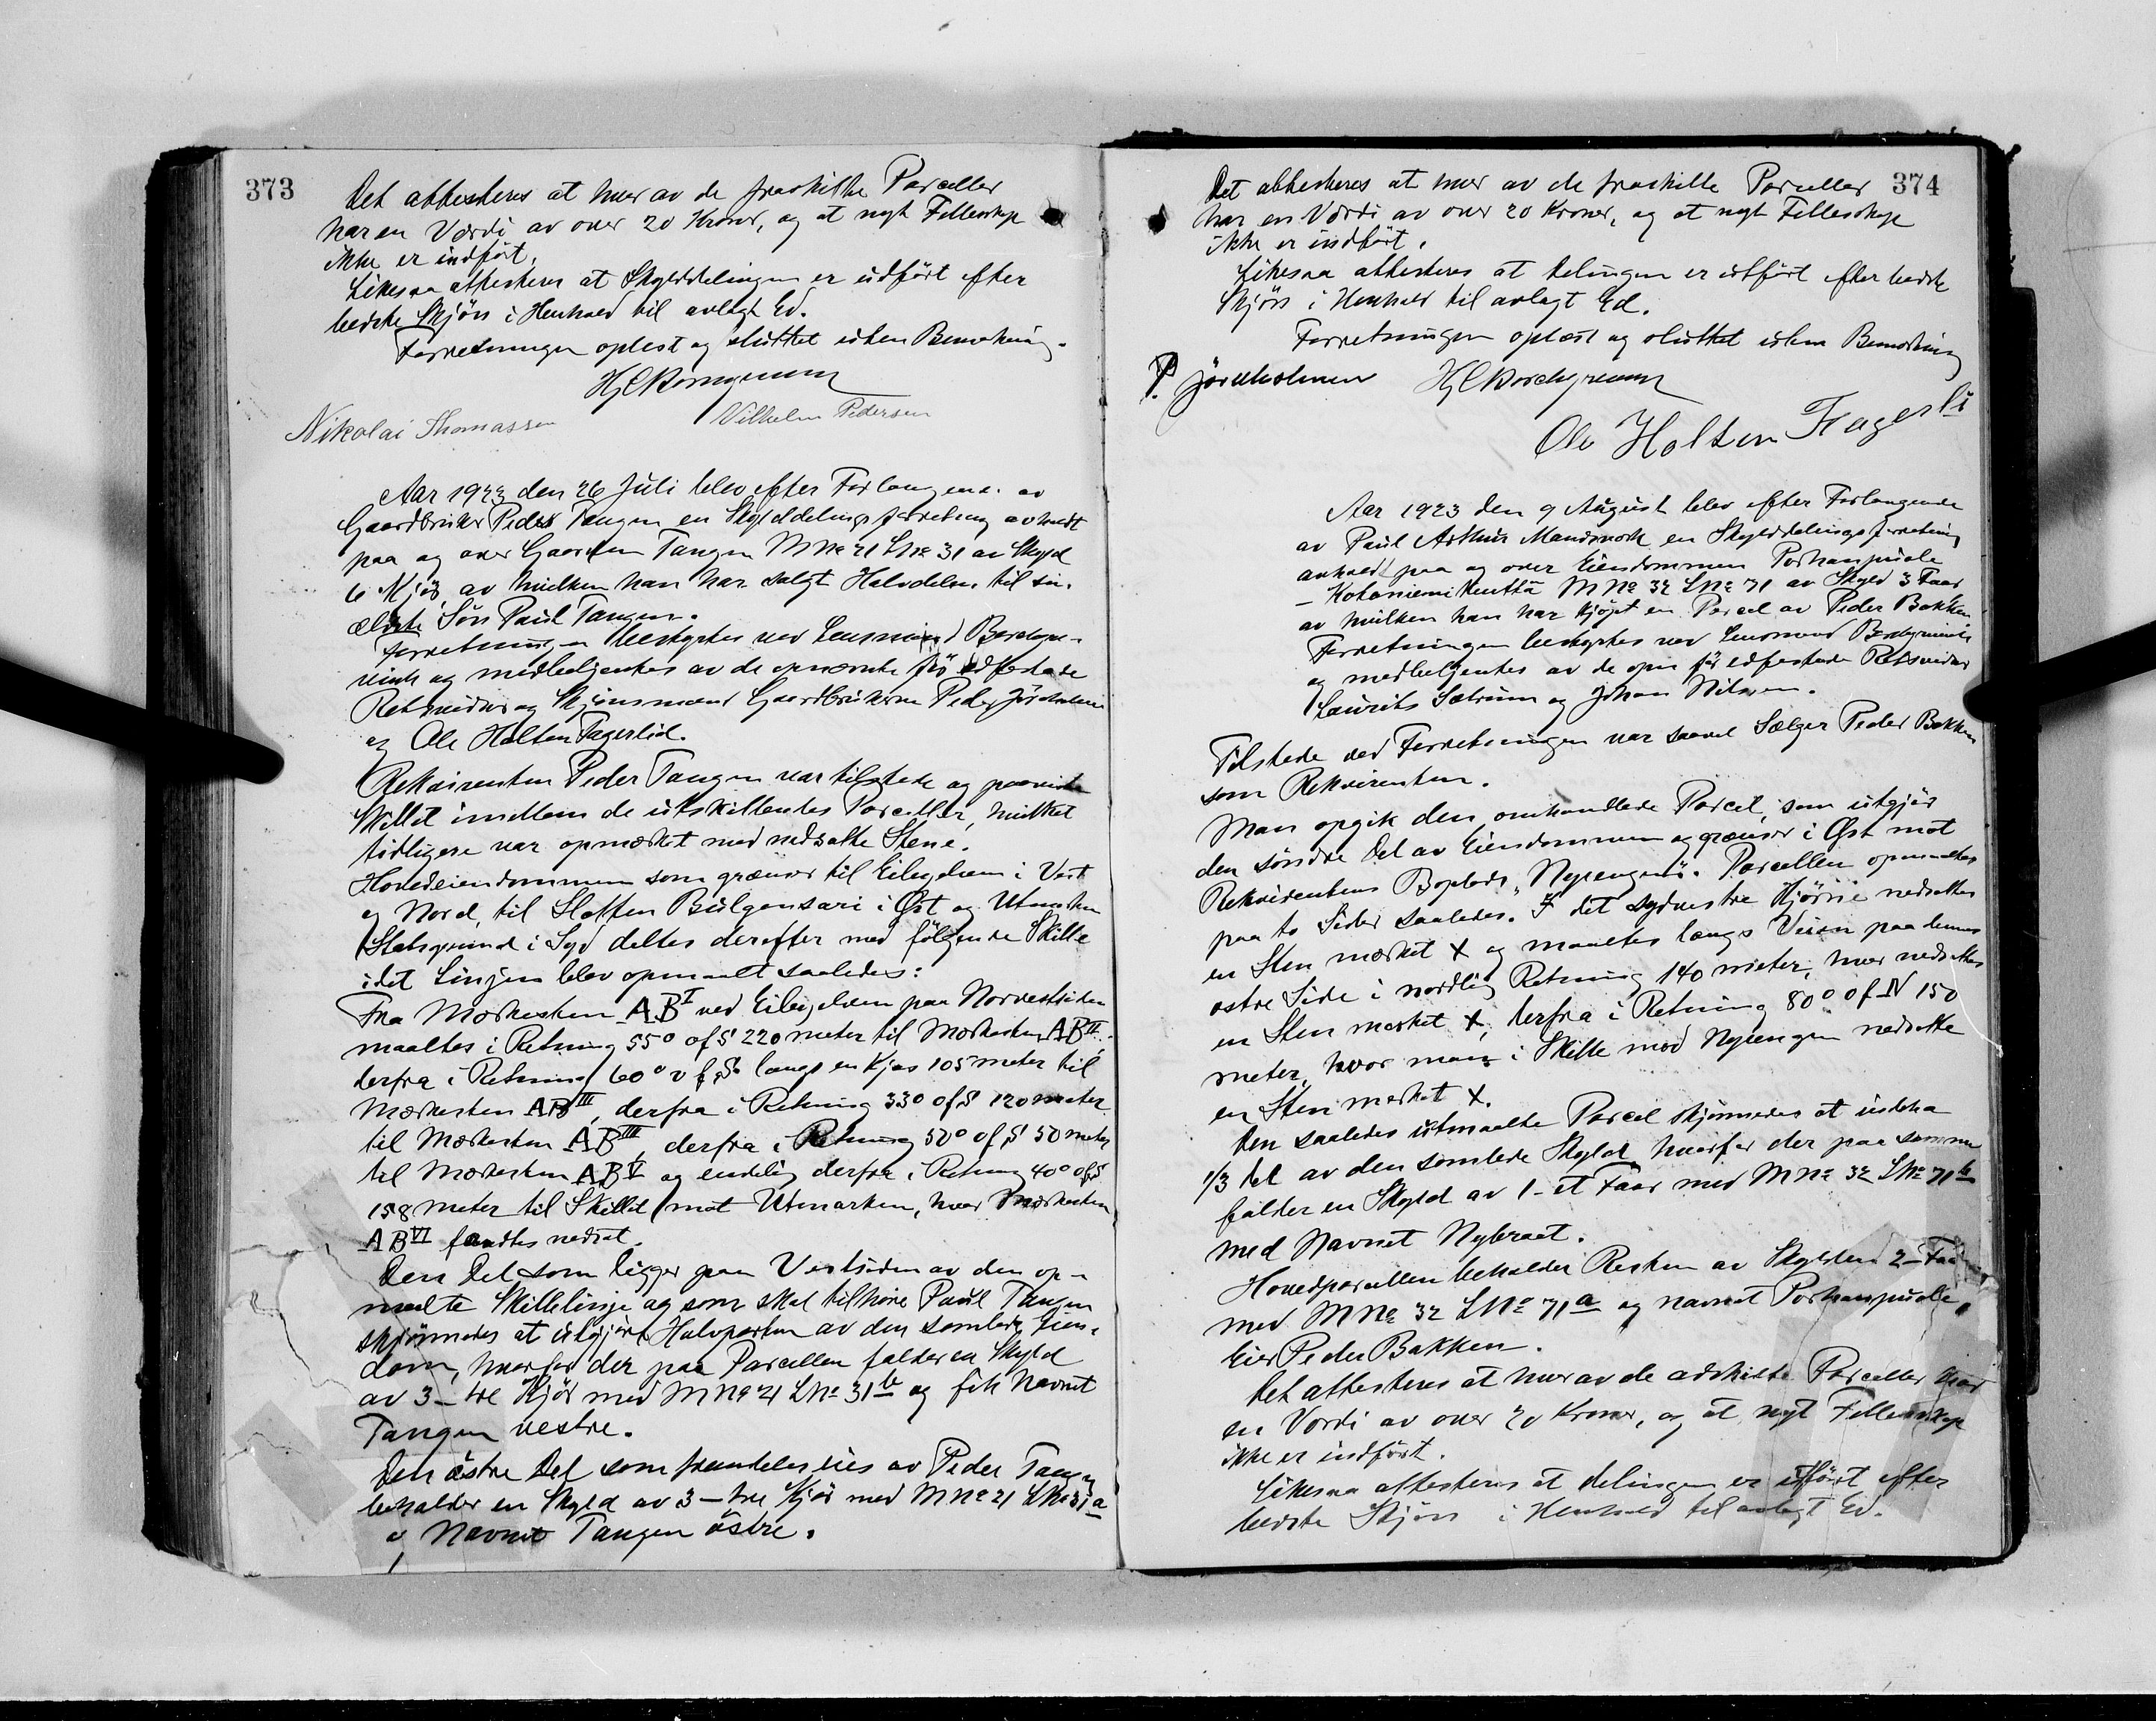 373
Det attesteres at hver av de fraskilte Parceller
har en Værdi av over 20 Kroner, og at nyt Fellesskap
ikke er indført.
Likesaa attesteres at Skylddelingen er udført efter
bedste Skjøn i Henhold til avlagt Ed.
Forretningen oplest og sluttet uten Bemerkning.
Nikolai Thomassen Vilhelm Pedersen
Aar 1923 den 26 Juli blev efter Forlangende av
Gaardbruker Peder Tangen en Skylddelingsforretning avholdt
paa og over Gaarden Tangen M No 21 L No 31 av Skyld
6 Kjør, av hvilken han har solgt Halvdelen til sin
ældste Søn Paul Tangen.
Forretningen bestyrtes ved Lensmand Borchgre-
vink og medbetjentes av de opnævnte før edfestede
Retsvidner og Skjønsmænd Gaardbrukerne Peder Jørstholmen
og Ole Holten Fagerlid.
Rekvirenten Peder Tangen var tilstede og paaviste
Skillet imellem de utskillendes Parceller, hvilket
tidligere var opmerket med nedsatte Stene.
Hovedeiendommen som grænser til Eibyelven i Vest
og Nord, til Sletten Bulgensari i Øst og Utmarken
(Statsgrund i Syd deltes derefter med følgende Skille
idet Linjen blev opmaalt saaledes:
Fra Merkesten AB I ved Eibyelven paa Norvestsiden
maaltes i Retning 55° ø f S 220 meter til Merkesten AB II.
derfra i Retning 60° v f S. langs en Kjos 105 meter til
Merkesten AB III, derfra i Retning 33° ø f S 120 meter
til Merkesten AB III, derfra i Retning 50° ø f S 50 meter
til Merkesten AB V og endelig derfra i Retning 40° ø f S
158 meter til Skillet mot Utmarken, hvor Merkesten
AB VI fandtes nedsat.
Den Del som ligger paa Vestsiden av den op-
maalte Skillelinje og som skal tilhøre Paul Tangen
skjønnedes at utgjøre Halvparten av den samlede Eien-
dom, hvorfor der paa Parcellen falder en Skyld
av 3 – tre Kjør med M No 21 L No 31 b og fik Navnet
Tangen vestre.
Den østre Del som fremdeles eies av Peder Tangen
beholder en Skyld av 3 – tre Kjør med M No 21 L No 31 a
og Navnet Tangen østre.
374
Det attesteres at hver av de fraskilte Parceller
har en Værdi av over 20 Kroner, og at nyt Fellesskap
ikke er indført.
Likesaa attesteres at Delingen er utført efter bedste
Skjøn i Henhold til avlagt Ed.
Forretningen oplæst og sluttet uten Bemerkning
P. Jørstholmen
Ole Holten Fagerli
Aar 1923 den 9 August blev efter Forlangende
av Paul Arthur Mandsverk en Skylddelingsforretning
avholdt paa og over Eiendommen Porhanpuole
– Kotaniemi Kenttä M No 32 L No 71 av Skyld 3 Faar
av hvilken han har kjøpt en Parcel av Peder Bakken
Forretningen bestyrtes ved Lensmand Borchgrevink
og medbetjentes av de opn før edfestede Retsvidner
Laurits Sætrum og Johan Nilsen.
Tilstede ved Forretningen var saavel Sælger Peder Bakken
som Rekvirenten.
Man opgik den omhandlede Parcel, som utgjør
den søndre Del av Eiendommen og grænser i Øst mot
Rekvirentens Boplads „Nyengen“. Parcellen opmaaltes
paa to Sider saaledes. I det sydvestre Hjørne nedsattes
en Sten merket X og maaltes langs Veien paa dennes
østre Side i nordlig Retning 140 meter, hvor nedsattes
en Sten merket X, derfra i Retning 80° ø f N 150
meter, hvor man i Skille mod Nyengen nedsatte
en Sten merket X.
Den saaledes utmaalte Parcel skjønnedes at utgjøre
1/3 Del av den samlede Skyld, hvorfor der paa samme
falder en Skyld av 1 – et Faar med M No 32 L No 71 b
med Navnet Nybraat.
Hovedparcellen beholder Resten av Skylden 2 – Faar
med M No 32 L No 71 a og Navnet Porhanpuole,
Eier Peder Bakken.
Det attesteres at hver av de adskilte Parceller har
en Værdi av over 20 Kroner, og at nyt Fellesskap
ikke er indført.
Likesaa attesteres at Delingen er utført efter
bedste Skjøn i Henhold til avlagt Ed.